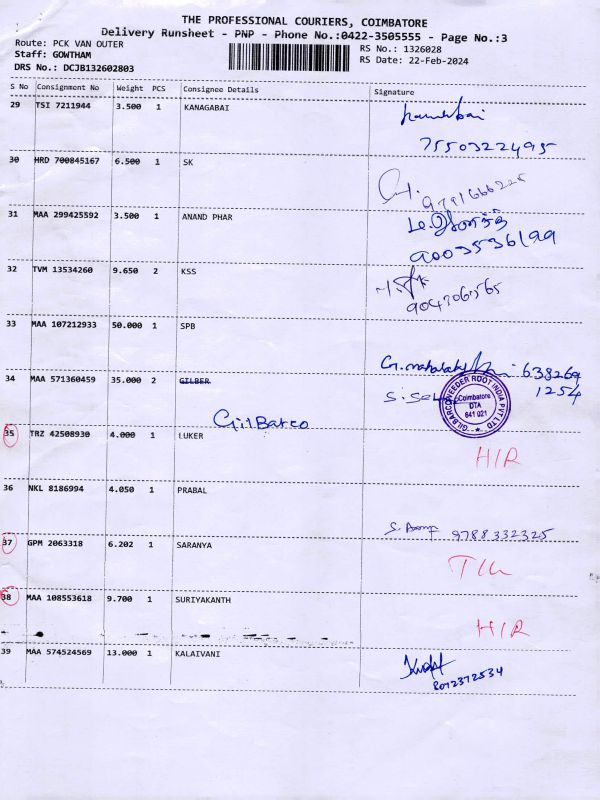 THE PROFESSIONAL COURIERS, COIMBATORE
Delivery Runsheet - PNP - Phone No.:0422-3505555 - Page No.:3
Route: PCK VAN OUTER
RS No.: 1326028
Staff: GOWTHAM
RS Date: 22-Feb-2024
DRS No.: DCJB132602803
S No Consignment No Weight PCS Consignee Details Signature
29 TSI 7211944 3.500 1 KANAGABAI
7550322495
30 HRD 700845167 6.500 1 SK
9791666225
31 MAA 299425592 3.500 1 ANAND PHAR
9003536199
32 TVM 13534260 9.650 2 KSS
9043063565
33 MAA 107212933 50.000 1 SPB
638269
34 MAA 571360459 35.000 2 GILBER
1254
GilBarco
GILBARCO VEEDER ROOT INDIA PVT LTD
Coimbatore
DTA
641 021
35 TRZ 42508930 4.000 1 LUKER
H/R
36 NKL 8186994 4.050 1 PRABAL
9788332325
37 GPM 2063318 6.202 1 SARANYA
38 MAA 108553618 9.700 1 SURIYAKANTH
H/R
39 MAA 574524569 13.000 1 KALAIVANI
8072372534